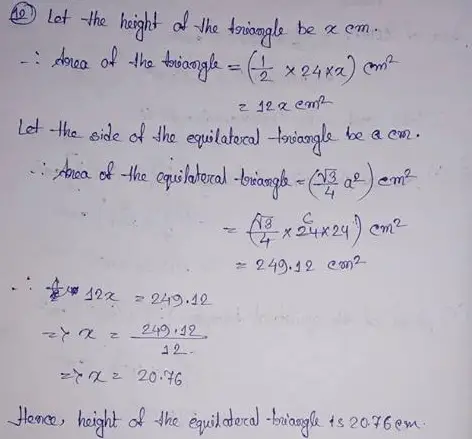 (10) Let the height of the triangle be x cm.
∴ Area of the triangle = (1/2 × 24 × x) cm²
= 12x cm²
Let the side of the equilateral triangle be a cm.
∴ Area of the equilateral triangle = (√3/4 a²) cm²
= (√3/4 × 24 × 24) cm²
= 249.12 cm²
∴ 12x = 249.12
=> x = 249.12/12
=> x = 20.76
Hence, height of the equilateral triangle is 20.76 cm.